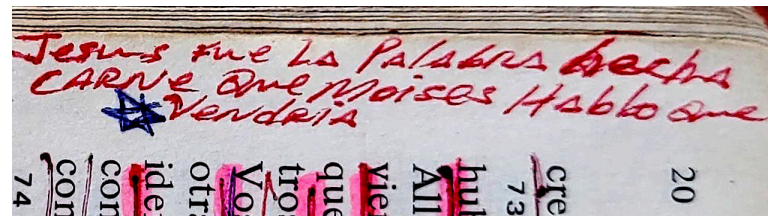 Jesus fue La Palabra hecha
CARNe que Moises Hablo que
vendria
20
cre
73
hul
All
vien
que
tros
Vos
otra
ider
con
con
74